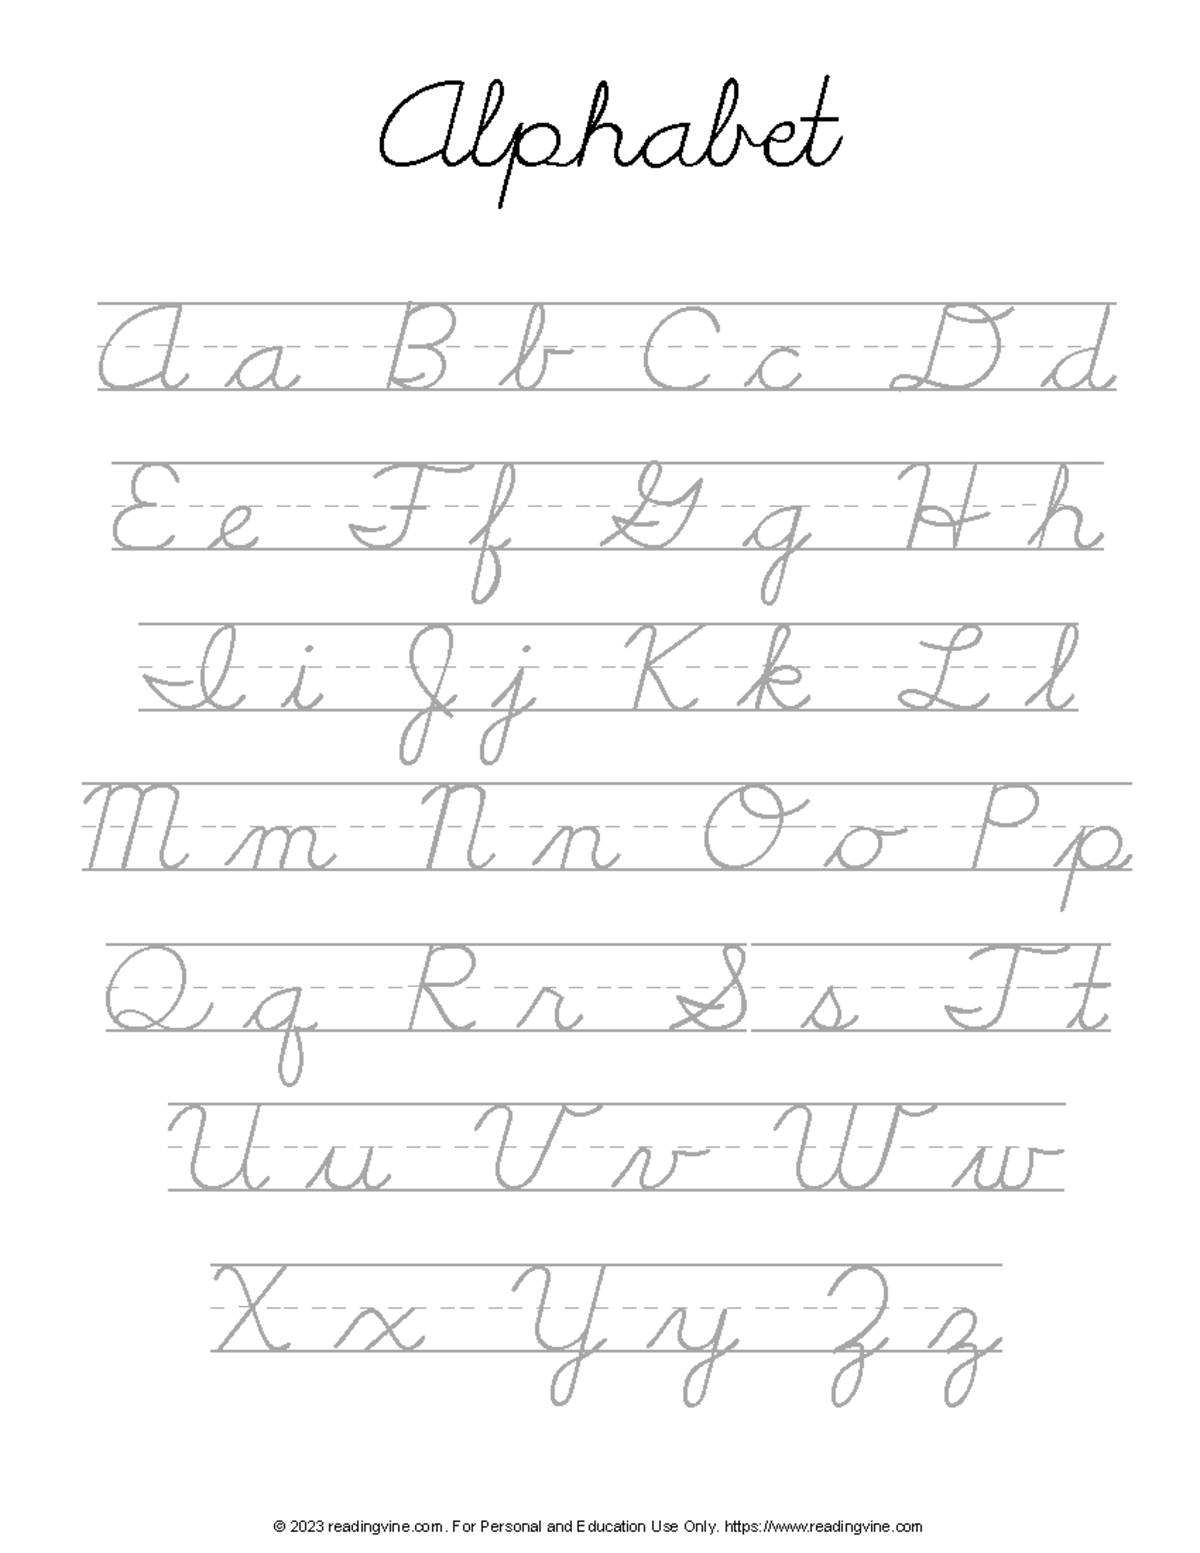 Alphabet
A a B b C c D d
E e F f G g H h
I i J j K k L l
M m N n O o P p
Q q R r S s T t
U u V v W w
X x Y y Z z
© 2023 readingvine.com. For Personal and Education Use Only. https://www.readingvine.com